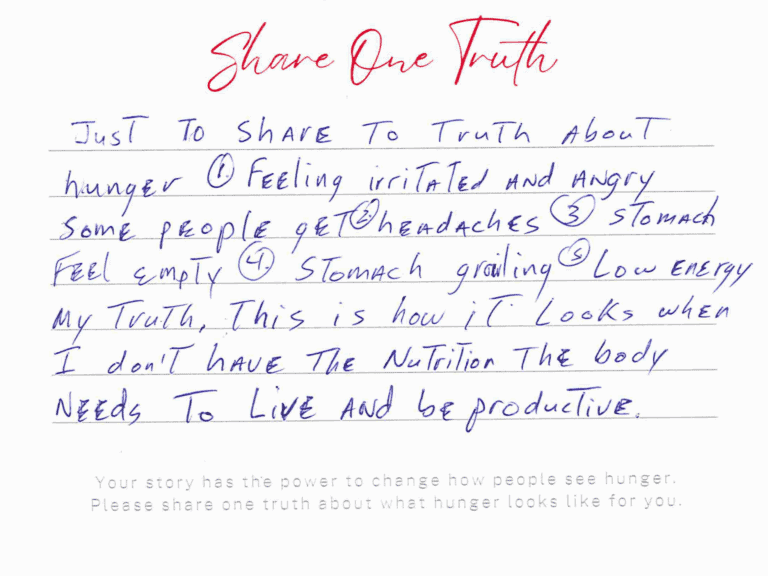 Share One Truth
Just To SHARE To Truth About
hunger ① FEEling irriTATEd AND ANgry
SomE pEoplE gET ② hEAdAcHES ③ STomAch
FEEl Empty ④ STomAch growling ⑤ Low ENERgy
My Truth, This is how iT Looks when
I don'T hAVE The NuTriTion THE body
NEEds To LiVE ANd bE productivE.
Your story has the power to change how people see hunger.
Please share one truth about what hunger looks like for you.